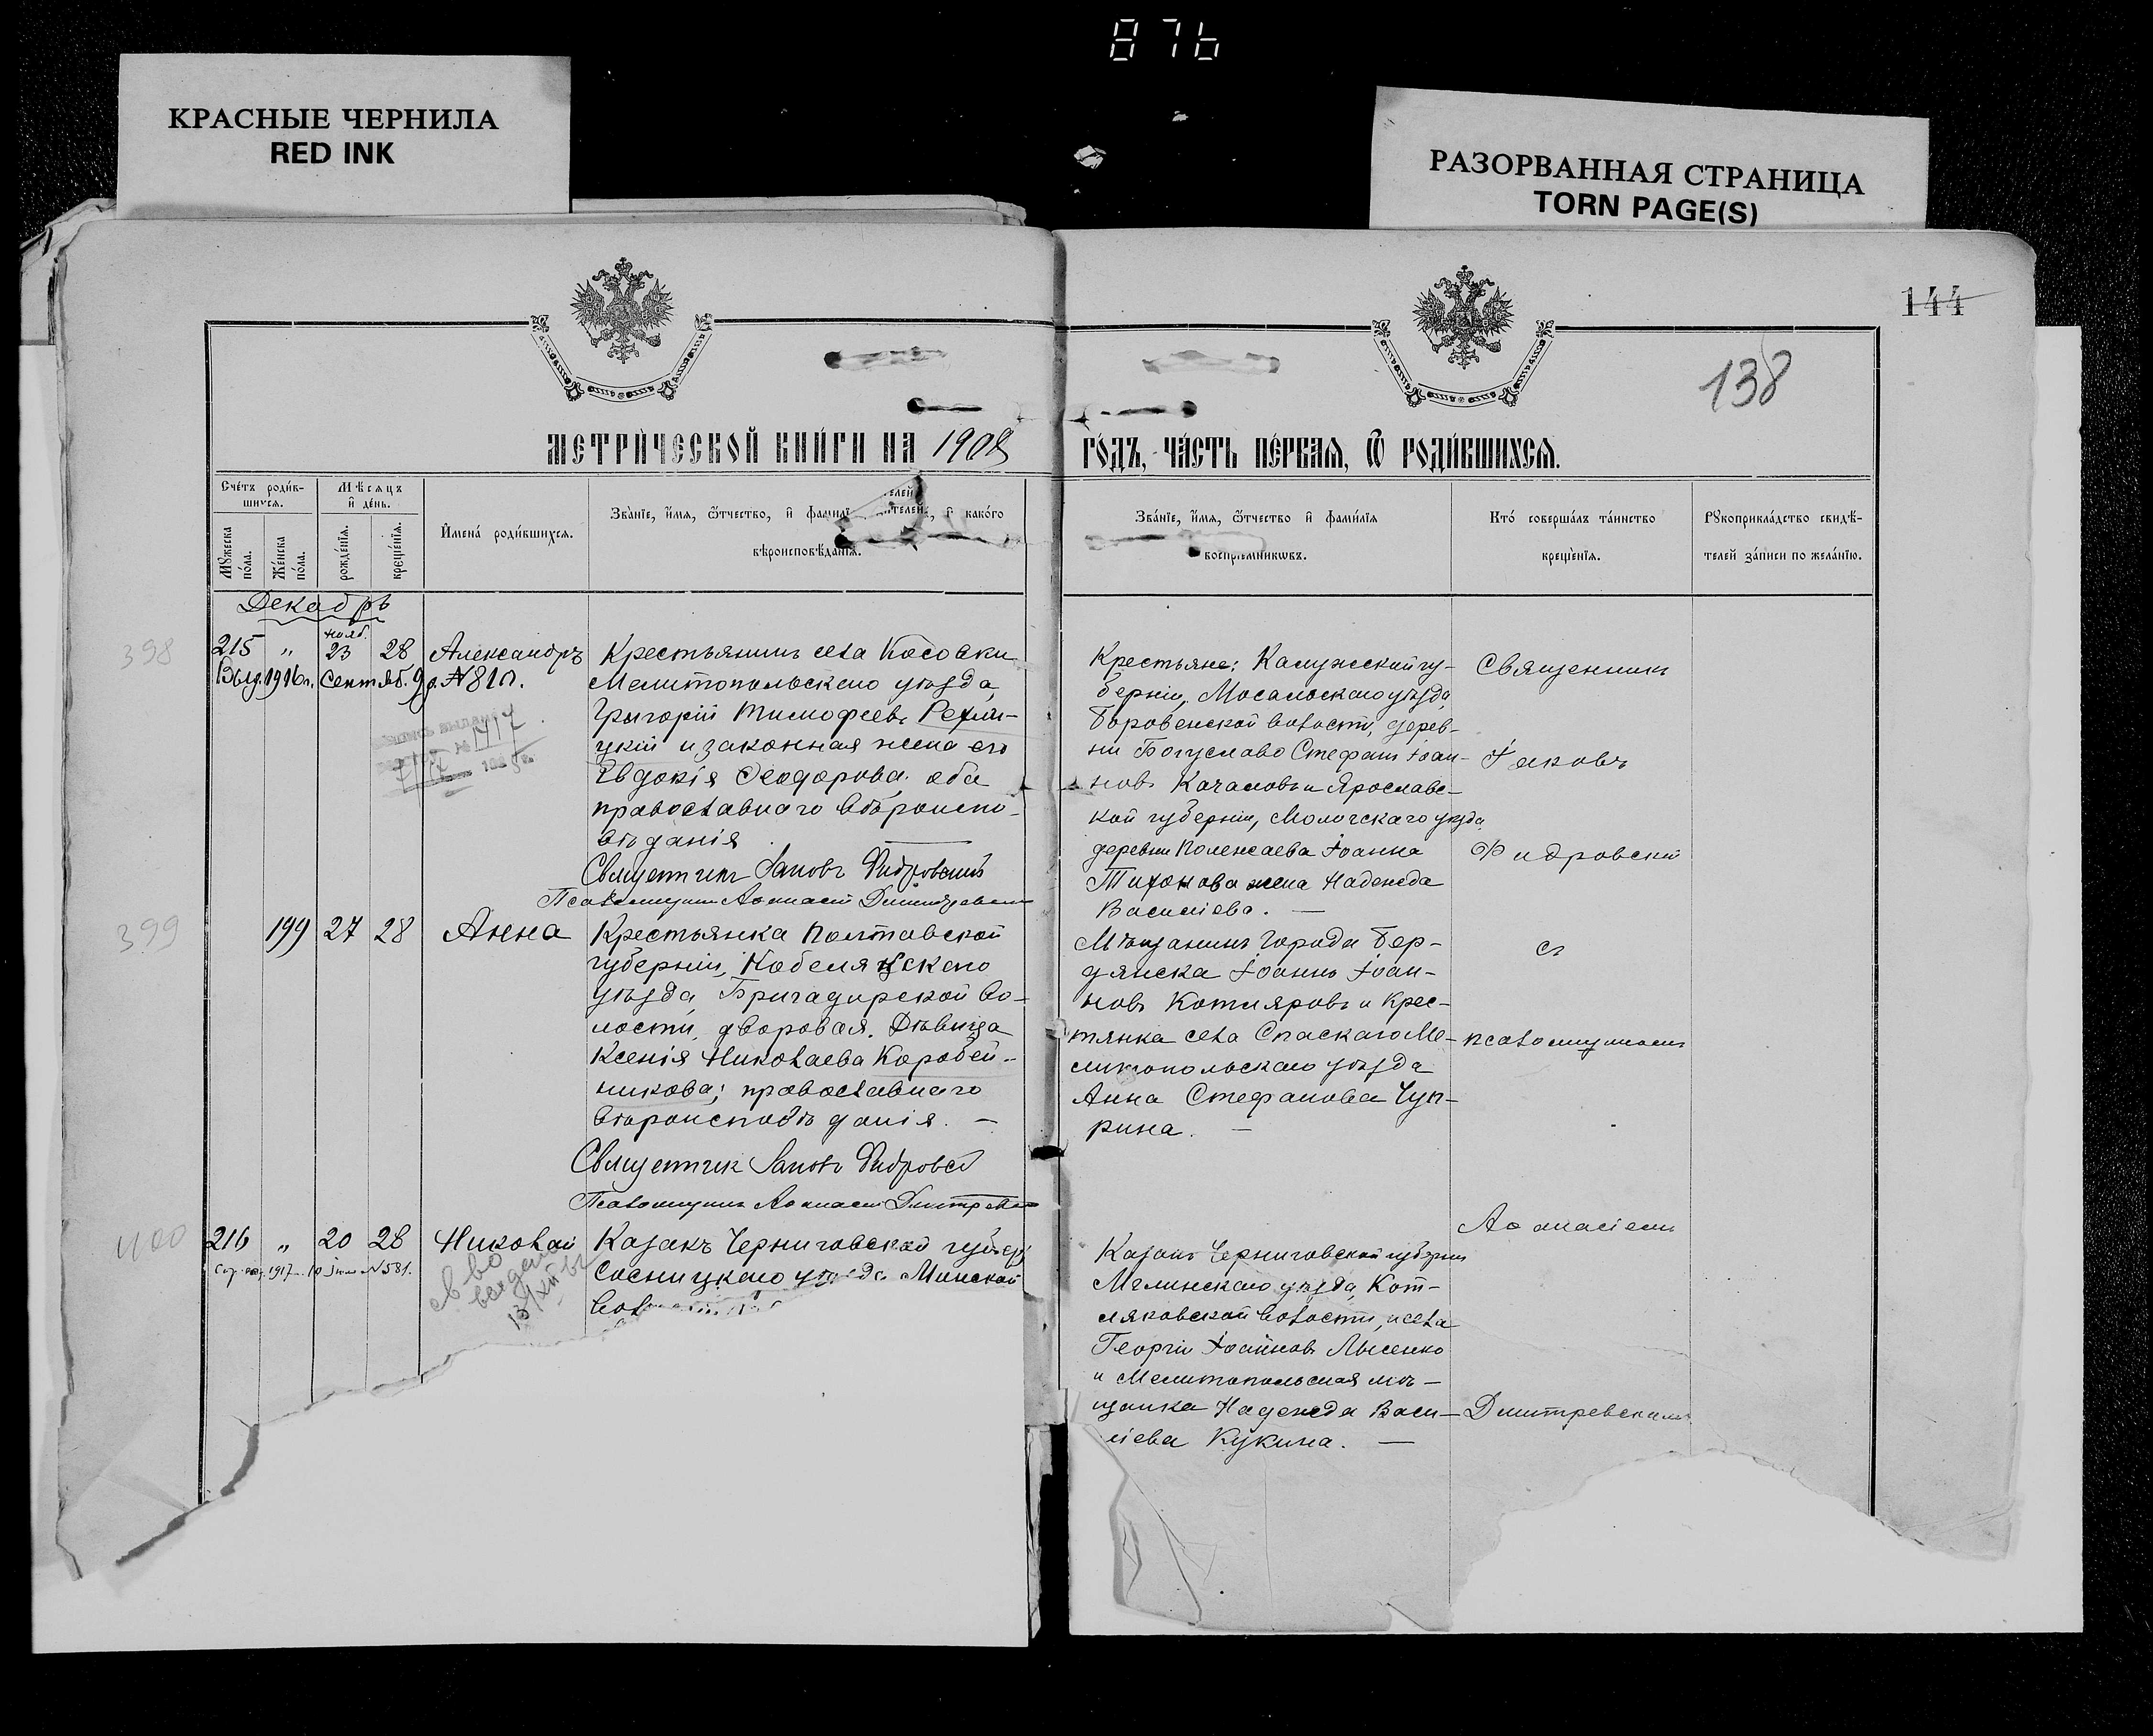 876
КРАСНЫЕ ЧЕРНИЛА
RED INK
РАЗОРВАННАЯ СТРАНИЦА
TORN PAGE(S)
144
138
МЕТРИ́ЧЕСКОЙ КНИ́ГИ НА 1908
ГО́ДЪ, ЧА́СТЬ ПЕ́РВАЯ, Ѿ РОДИ́ВШИХСЯ.
Сче́тъ роди́в-
шихся.
Мѣсяцъ
и де́нь.
Мꙋжеска по́ла.
Же́нска по́ла.
рожде́нїя.
креще́нїя.
Имена̀ роди́вшихся.
Зва́нїе, и́мя, ѻ́тчество, и фами́лї телей, и како́го
вѣроисповѣ́данїя.
Зва́нїе, и́мя, ѻ́тчество и фами́лїя
воспрїемникѡвъ.
Кто̀ соверша́лъ та́инство
креще́нїя.
Рꙋкоприкла́дство свидѣ́-
телей за́писи по жела́нїю.
Декабрь
398
215 " нояб. 23 28 Александръ
Выд. 1916 г. Сентяб. 9 д. № 811.
Крестьянинъ села Косовки
Мелитопольскаго уѣзда,
Григорій Тимоѳеевъ
цкій и законная жена его
Евдокія Ѳеодорова, оба
православнаго вѣроиспо-
вѣданія
Священникъ Іаковъ
Псаломщикъ Аѳанасій
Крестьяне: Калужской гу-
берніи, Мосальскаго уѣзда,
Боровенской волости, дерев-
ни Богуславо Стефанъ Іоан-
новъ Качановъ и Ярославс-
кой губерніи, Мологскаго уѣзда
деревни Полежаева Іоанна
Тихонова жена Надежда
Василіева. —
Священникъ
Іаковъ
399
199 27 28 Анна
Крестьянка Полтавской
губерніи, Кобелякскаго
уѣзда, Бригадирской во-
лости, дворовая. Дѣвица
Ксенія Николаева Коробей-
никова; православнаго
вѣроисповѣданія. —
Священник Іаковъ
Псаломщикъ Аѳанасій
Мѣщанинъ города Бер-
дянска Іоаннъ Іоан-
новъ Котляровъ и крес-
тянка села Спаскаго Ме-
литопольскаго уѣзда
Анна Стефанова Чуп-
рина. —
съ
псаломщикомъ
400
216 " 20 28 Николай
1917 г. 10 № 581.
св во
выдано
13/XII
Казакъ Черниговской губер
Сосницкаго уѣзда Минской
Казакъ Черниговской губерніи
Мглинскаго уѣзда, Кот-
ляковской волости, и села
Георгій Іоанновъ Лысенко
и Мелитопольская мѣ-
щанка Надежда Васи-
ліева Кукина. —
Аѳанасіемъ
Дмитревскимъ